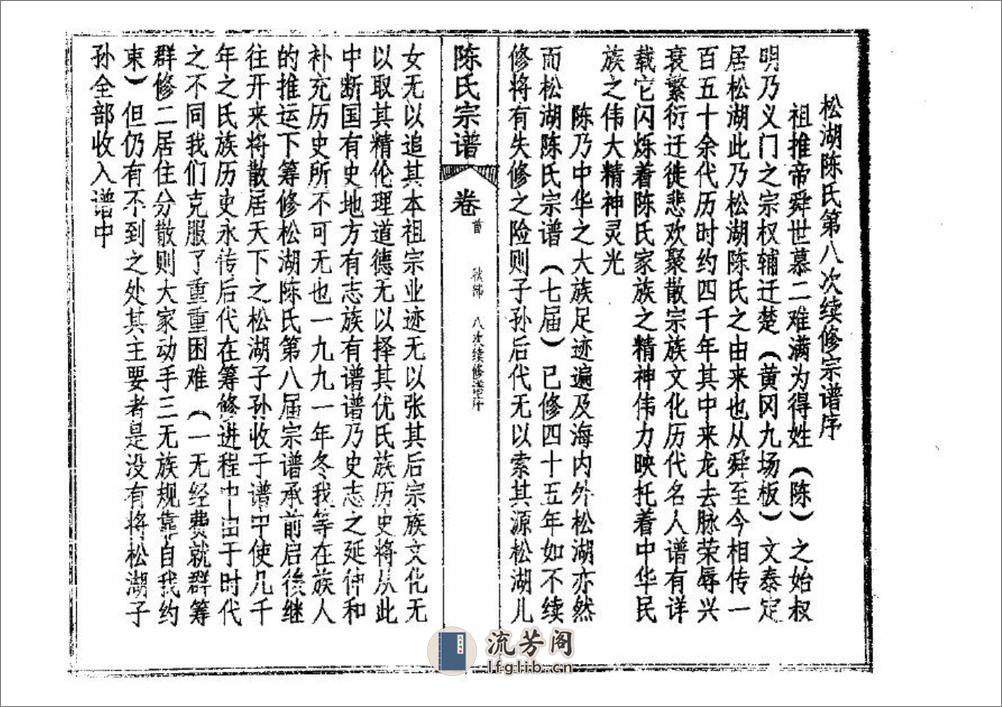 松湖陈氏第八次续修宗谱序
祖推帝舜世慕二难满为得姓（陈）之始权
明乃义门之宗权辅迁楚（黄冈九场板）文泰定
居松湖此乃松湖陈氏之由来也从舜至今相传一
百五十余代历时约四千年其中来龙去脉荣辱兴
衰繁衍迁徒悲欢聚散宗族文化历代名人谱有详
载它闪烁着陈氏家族之精神伟力映托着中华民
族之伟大精神灵光
陈乃中华之大族足迹遍及海内外松湖亦然
而松湖陈氏宗谱（七届）已修四十五年如不续
修将有失修之险则子孙后代无以索其源松湖儿
陈氏宗谱 卷首 八次续修谱序
女无以追其本祖宗业迹无以张其后宗族文化无
以取其精伦理道德无以择其优氏族历史将从此
中断国有史地方有志族有谱谱乃史志之延伸和
补充历史所不可无也一九九一年冬我等在族人
的推运下筹修松湖陈氏第八届宗谱承前启後继
往开来将散居天下之松湖子孙收于谱中使几千
年之氏族历史永传后代在筹修进程中由于时代
之不同我们克服了重重困难（一无经费就群筹
群修二居住分散则大家动手三无族规靠自我约
束）但仍有不到之处其主要者是没有将松湖子
孙全部收入谱中
流芳阁
lfglib.cn